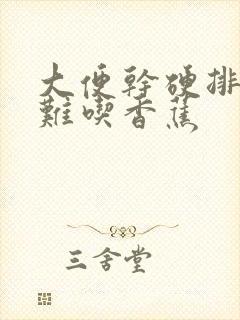 大便幹硬排
難喫香蕉
三舍堂